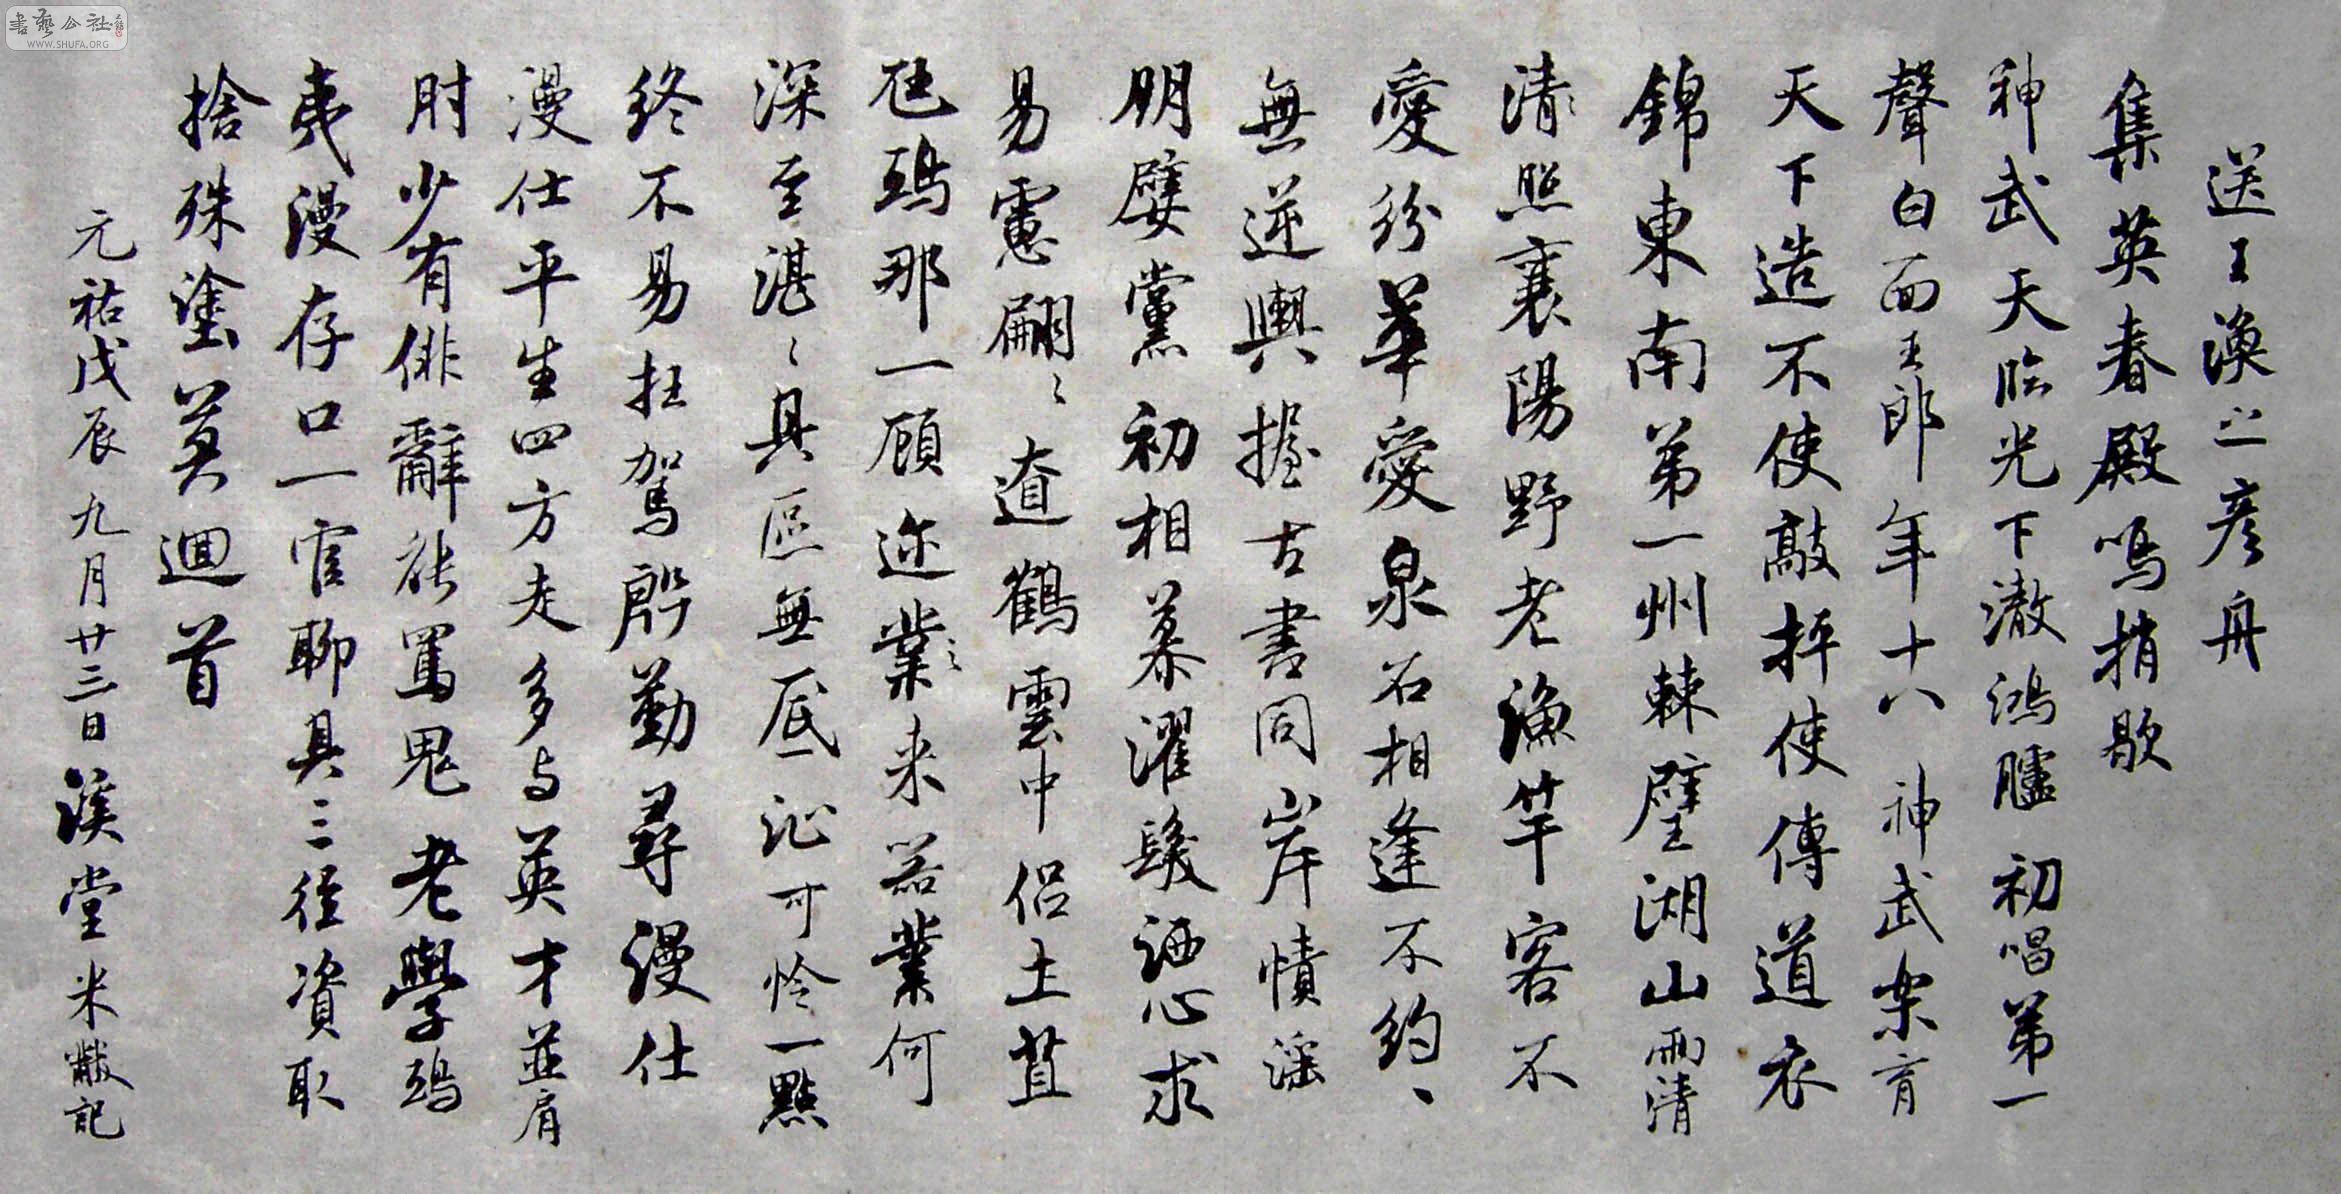 送王渙之彥舟
集英春殿鳴捎歇
神武天臨光下澈鴻臚初唱第一
聲白面玉郎年十八神武樂育
天下造不使敲枰使傳道衣
錦東南第一州棘璧湖山兩清
清照襄陽野老漁竿客不
愛紛華愛泉石相逢不約、
無逆輿握古書同岸幘淫
朋嬖黨初相慕濯髮洒心求
易慮翩〻遼鶴雲中侶土苴
尪鵄那一顧迩業来器業何
深至湛〻具區無底沚可怜一點
終不易枉駕殷勤尋漫仕
漫仕平生四方走多与英才並肩
肘少有俳辭能罵鬼老學鵄
夷漫存口一官聊具三徑資取
捨殊塗莫迴首
元祐戊辰九月廿三日溪堂米黻記
書藝公社
WWW.SHUFA.ORG